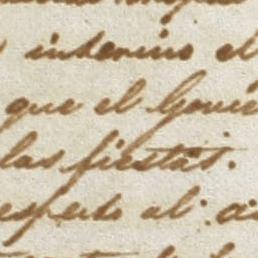 interino el
que el Gov
las fiestas.
especto al